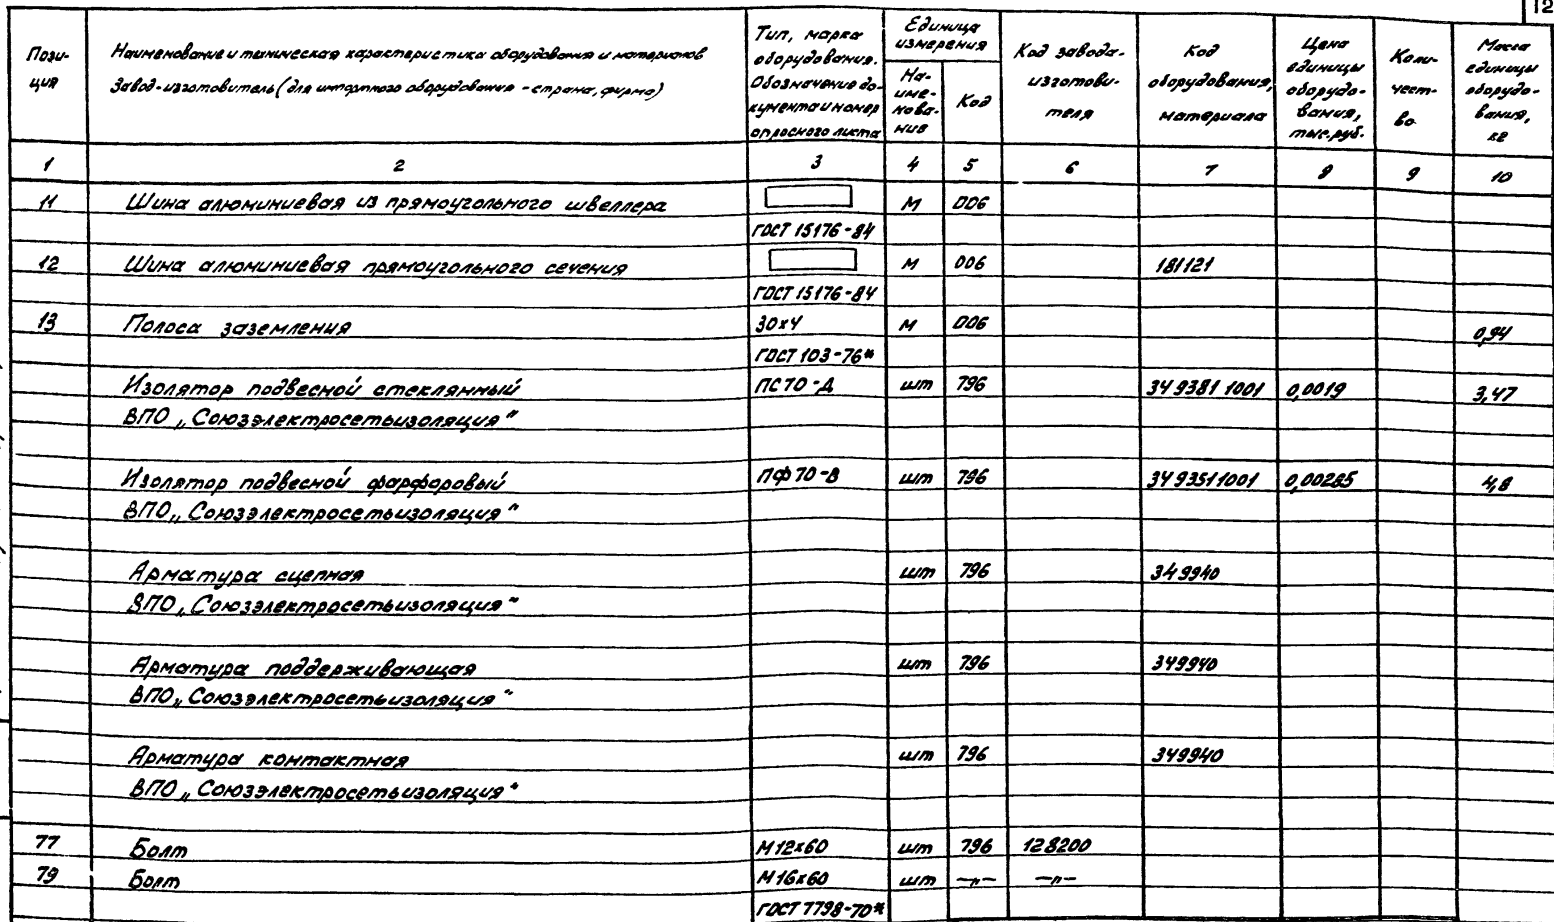 12
Пози-
ция
Наименование и техническая характеристика оборудования и материалов
Завод-изготовитель (для импортного оборудования - страна, фирма)
Тип, марка
оборудования.
Обозначение до-
кумента и номер
опросного листа
Единица
измерения
На-
име-
нова-
ние
Код
Код завода-
изготови-
теля
Код
оборудования,
материала
Цена
единицы
оборудо-
вания,
тыс.руб.
Коли-
чест-
во
Масса
единицы
оборудо-
вания,
кг
1 2 3 4 5 6 7 8 9 10
11 Шина алюминиевая из прямоугольного швеллера М 006
ГОСТ 15176-84
12 Шина алюминиевая прямоугольного сечения М 006 181121
ГОСТ 15176-84
13 Полоса заземления 30х4 М 006 0,94
ГОСТ 103-76*
Изолятор подвесной стеклянный ПС70-Д шт 796 34 9381 1001 0,0019 3,47
ВПО „Союзэлектросетьизоляция"
Изолятор подвесной фарфоровый ПФ70-В шт 796 34 93511001 0,00285 4,8
ВПО „Союзэлектросетьизоляция"
Арматура сцепная шт 796 349940
ВПО „Союзэлектросетьизоляция"
Арматура поддерживающая шт 796 349940
ВПО „Союзэлектросетьизоляция"
Арматура контактная шт 796 349940
ВПО „Союзэлектросетьизоляция"
77 Болт М12х60 шт 796 128200
79 Болт М16х60 шт —„— —„—
ГОСТ 7798-70*